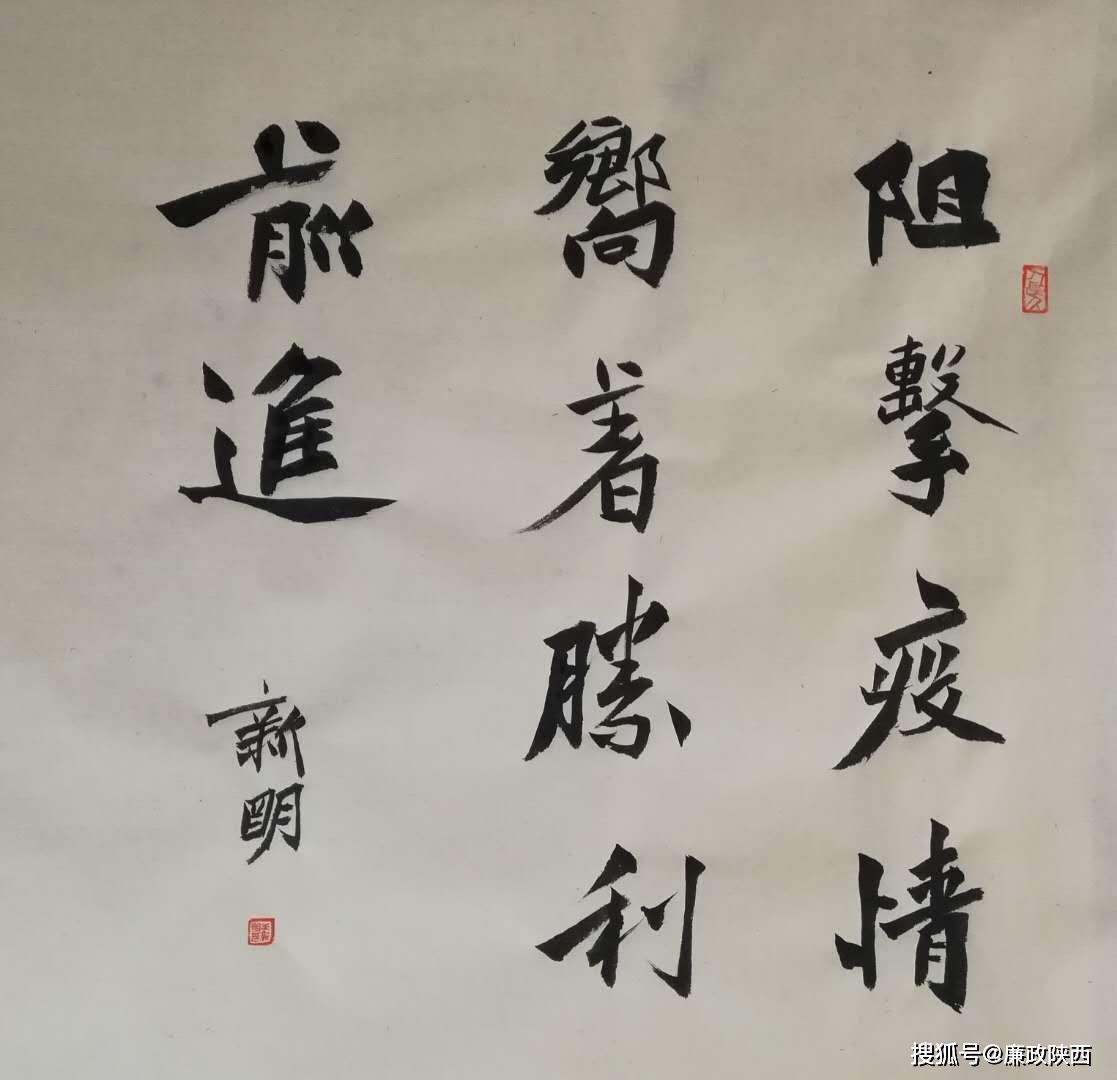 阻擊疫情
嚮着勝利
前進
新明
搜狐号@廉政陕西